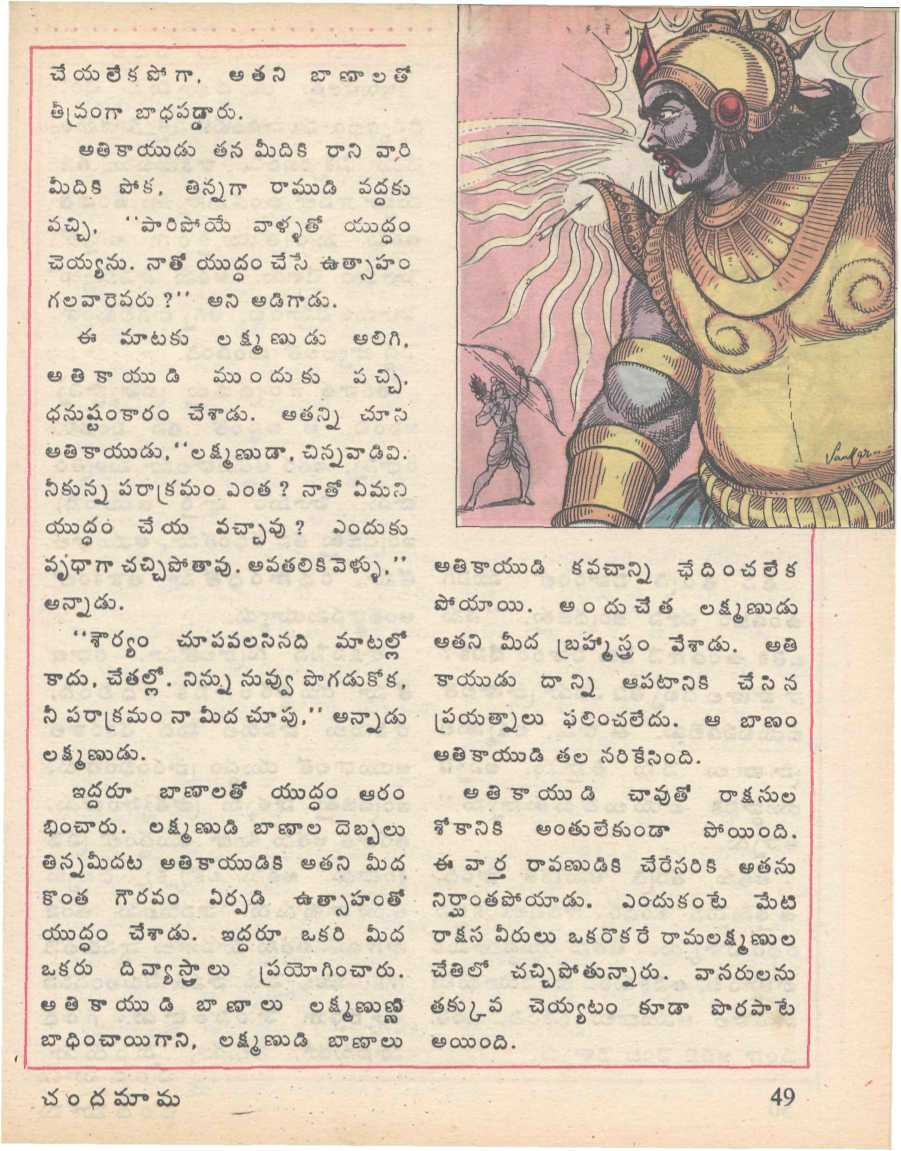 చేయలేకపోగా, అతని బాణాలతో
తీవ్రంగా బాధపడ్డారు.
అతికాయుడు తన మీదికి రాని వారి
మీదికి పోక, తిన్నగా రాముడి వద్దకు
వచ్చి, ‘‘పారిపోయే వాళ్ళతో యుద్ధం
చెయ్యను. నాతో యుద్ధం చేసే ఉత్సాహం
గలవారెవరు ?’’ అని అడిగాడు.
ఈ మాటకు లక్ష్మణుడు అలిగి,
అతికాయుడి ముందుకు వచ్చి,
ధనుష్టంకారం చేశాడు. అతన్ని చూసి
అతికాయుడు, ‘‘లక్ష్మణుడా, చిన్నవాడివి.
నీకున్న పరాక్రమం ఎంత ? నాతో ఏమని
యుద్ధం చేయ వచ్చావు ? ఎందుకు
వృధాగా చచ్చిపోతావు. అవతలికి వెళ్ళు,’’
అన్నాడు.
‘‘శౌర్యం చూపవలసినది మాటల్లో
కాదు, చేతల్లో. నిన్ను నువ్వు పొగడుకోక,
నీ పరాక్రమం నా మీద చూపు,’’ అన్నాడు
లక్ష్మణుడు.
ఇద్దరూ బాణాలతో యుద్ధం ఆరం
భించారు. లక్ష్మణుడి బాణాల దెబ్బలు
తిన్నమీదట అతికాయుడికి అతని మీద
కొంత గౌరవం ఏర్పడి ఉత్సాహంతో
యుద్ధం చేశాడు. ఇద్దరూ ఒకరి మీద
ఒకరు దివ్యాస్త్రాలు ప్రయోగించారు.
అతికాయుడి బాణాలు లక్ష్మణుణ్ణి
బాధించాయిగాని, లక్ష్మణుడి బాణాలు
Sankar
అతికాయుడి కవచాన్ని ఛేదించలేక
పోయాయి. అందుచేత లక్ష్మణుడు
అతని మీద బ్రహ్మాస్త్రం వేశాడు. అతి
కాయుడు దాన్ని ఆపటానికి చేసిన
ప్రయత్నాలు ఫలించలేదు. ఆ బాణం
అతికాయుడి తల నరికేసింది.
అతికాయుడి చావుతో రాక్షసుల
శోకానికి అంతులేకుండా పోయింది.
ఈ వార్త రావణుడికి చేరేసరికి అతను
నిర్ఘాంతపోయాడు. ఎందుకంటే మేటి
రాక్షస వీరులు ఒకరొకరే రామలక్ష్మణుల
చేతిలో చచ్చిపోతున్నారు. వానరులను
తక్కువ చెయ్యటం కూడా పొరపాటే
అయింది.
చందమామ
49